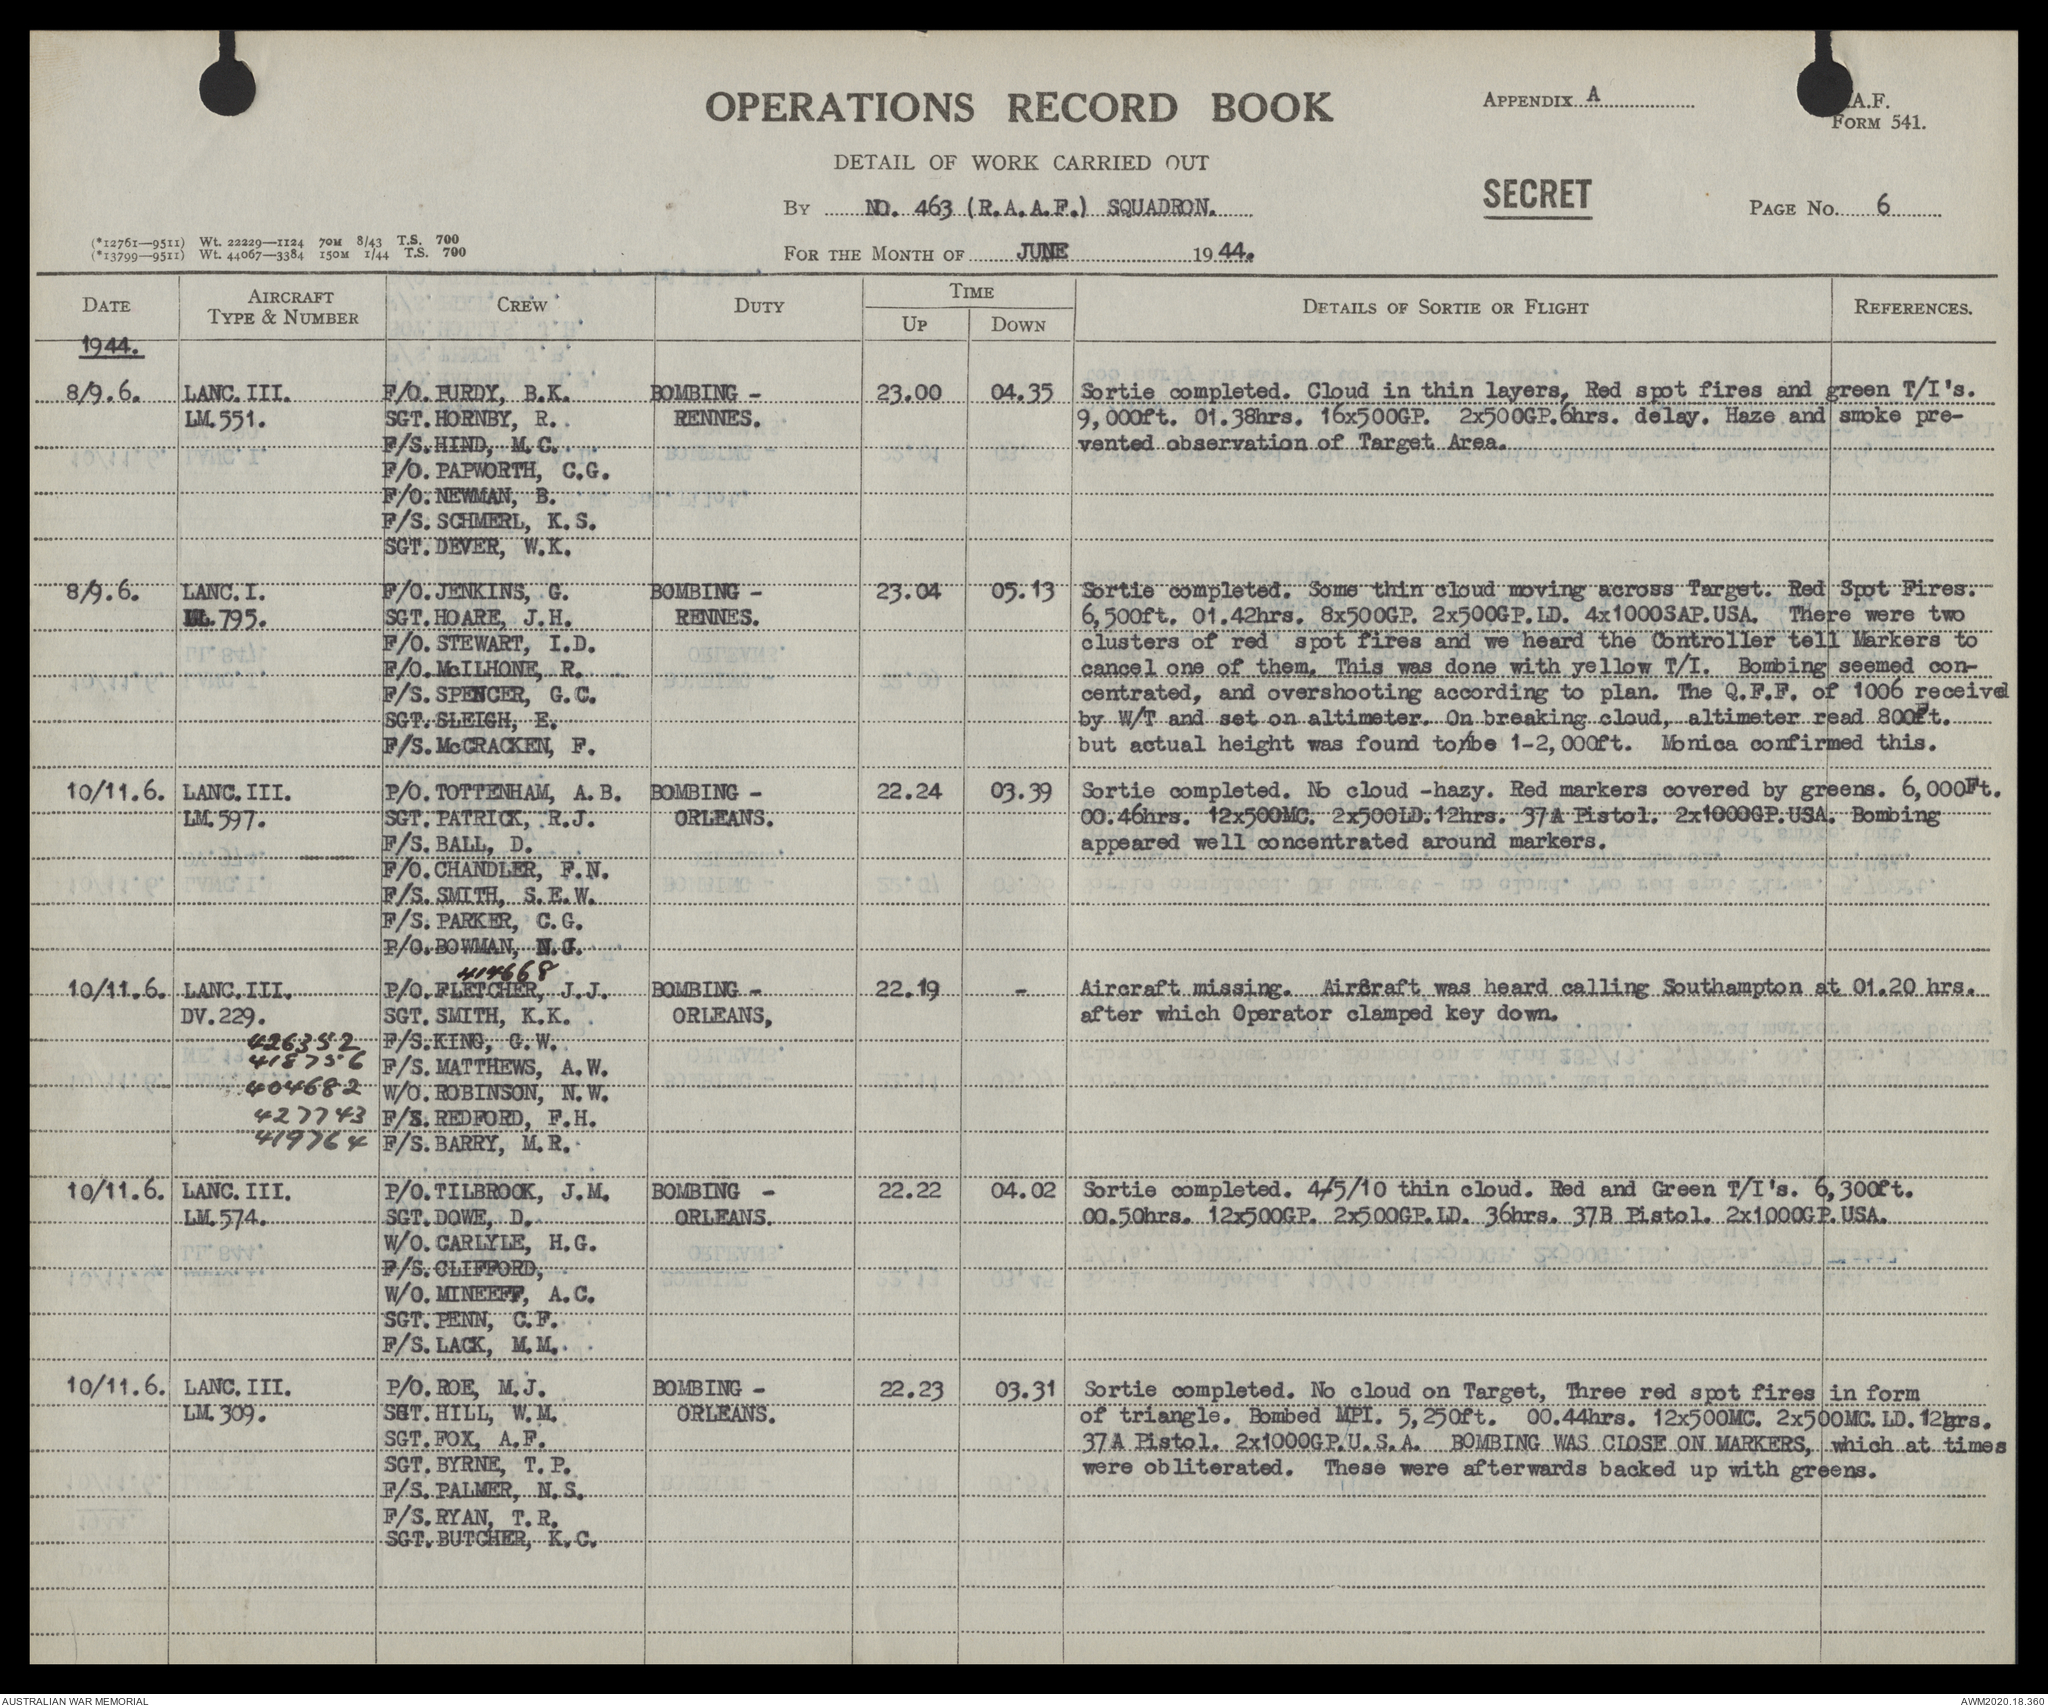 OPERATIONS RECORD BOOK
APPENDIX A
A.F.
FORM 541.
DETAIL OF WORK CARRIED OUT
SECRET
BY NO. 463 (R.A.A.F.) SQUADRON.
PAGE NO. 6
(*12761—9511) Wt. 22229—1124 70M 8/43 T.S. 700
(*13799—9511) Wt. 44067—3384 150M 1/44 T.S. 700
FOR THE MONTH OF JUNE 1944.
DATE AIRCRAFT TYPE & NUMBER CREW DUTY TIME UP DOWN DETAILS OF SORTIE OR FLIGHT REFERENCES.
1944.
8/9.6. LANC.III. F/O. PURDY, B.K. BOMBING - 23.00 04.35 Sortie completed. Cloud in thin layers, Red spot fires and green T/I's.
LM.551. SGT. HORNBY, R. RENNES. 9,000ft. 01.38hrs. 16x500GP. 2x500GP.6hrs. delay. Haze and smoke pre-
F/S. HIND, M.C. vented observation of Target Area.
F/O. PAPWORTH, C.G.
F/O. NEWMAN, B.
F/S. SCHMERL, K.S.
SGT. DEVER, W.K.
8/9.6. LANC.I. F/O. JENKINS, G. BOMBING - 23.04 05.13 Sortie completed. Some thin cloud moving across Target. Red Spot Fires.
LL.795. SGT. HOARE, J.H. RENNES. 6,500ft. 01.42hrs. 8x500GP. 2x500GP.LD. 4x1000SAP.USA. There were two
F/O. STEWART, I.D. clusters of red spot fires and we heard the Controller tell Markers to
F/O. McILHONE, R. cancel one of them. This was done with yellow T/I. Bombing seemed con-
F/S. SPENCER, G.C. centrated, and overshooting according to plan. The Q.F.F. of 1006 received
SGT. SLEIGH, E. by W/T and set on altimeter. On breaking cloud, altimeter read 800Ft.
F/S. McCRACKEN, F. but actual height was found to be 1-2,000ft. Monica confirmed this.
10/11.6. LANC.III. P/O. TOTTENHAM, A.B. BOMBING - 22.24 03.39 Sortie completed. No cloud -hazy. Red markers covered by greens. 6,000Ft.
LM.597. SGT. PATRICK, R.J. ORLEANS. 00.46hrs. 12x500MC. 2x500LD.12hrs. 37A Pistol. 2x1000GP.USA. Bombing
F/S. BALL, D. appeared well concentrated around markers.
F/O. CHANDLER, F.N.
F/S. SMITH, S.E.W.
F/S. PARKER, C.G.
P/O. BOWMAN, N.J.
414668
10/11.6. LANC.III. P/O. FLETCHER, J.J. BOMBING - 22.19 - Aircraft missing. Aircraft was heard calling Southampton at 01.20 hrs.
DV.229. SGT. SMITH, K.K. ORLEANS, after which Operator clamped key down.
426352 F/S. KING, G.W.
418756 F/S. MATTHEWS, A.W.
404682 W/O. ROBINSON, N.W.
427743 F/S. REDFORD, F.H.
419764 F/S. BARRY, M.R.
10/11.6. LANC.III. P/O. TILBROOK, J.M. BOMBING - 22.22 04.02 Sortie completed. 4/5/10 thin cloud. Red and Green T/I's. 6,300ft.
LM.574. SGT. DOWE, D. ORLEANS. 00.50hrs. 12x500GP. 2x500GP.LD. 36hrs. 37B Pistol. 2x1000GP.USA.
W/O. CARLYLE, H.G.
F/S. CLIFFORD,
W/O. MINEEFF, A.C.
SGT. PENN, C.F.
F/S. LACK, M.M.
10/11.6. LANC.III. P/O. ROE, M.J. BOMBING - 22.23 03.31 Sortie completed. No cloud on Target, Three red spot fires in form
LM.309. SGT. HILL, W.M. ORLEANS. of triangle. Bombed MPI. 5,250ft. 00.44hrs. 12x500MC. 2x500MC.LD.12hrs.
SGT. FOX, A.F. 37A Pistol. 2x1000GP.U.S.A. BOMBING WAS CLOSE ON MARKERS, which at times
SGT. BYRNE, T.P. were obliterated. These were afterwards backed up with greens.
F/S. PALMER, N.S.
F/S. RYAN, T.R.
SGT. BUTCHER, K.C.
AUSTRALIAN WAR MEMORIAL
AWM2020.18.360